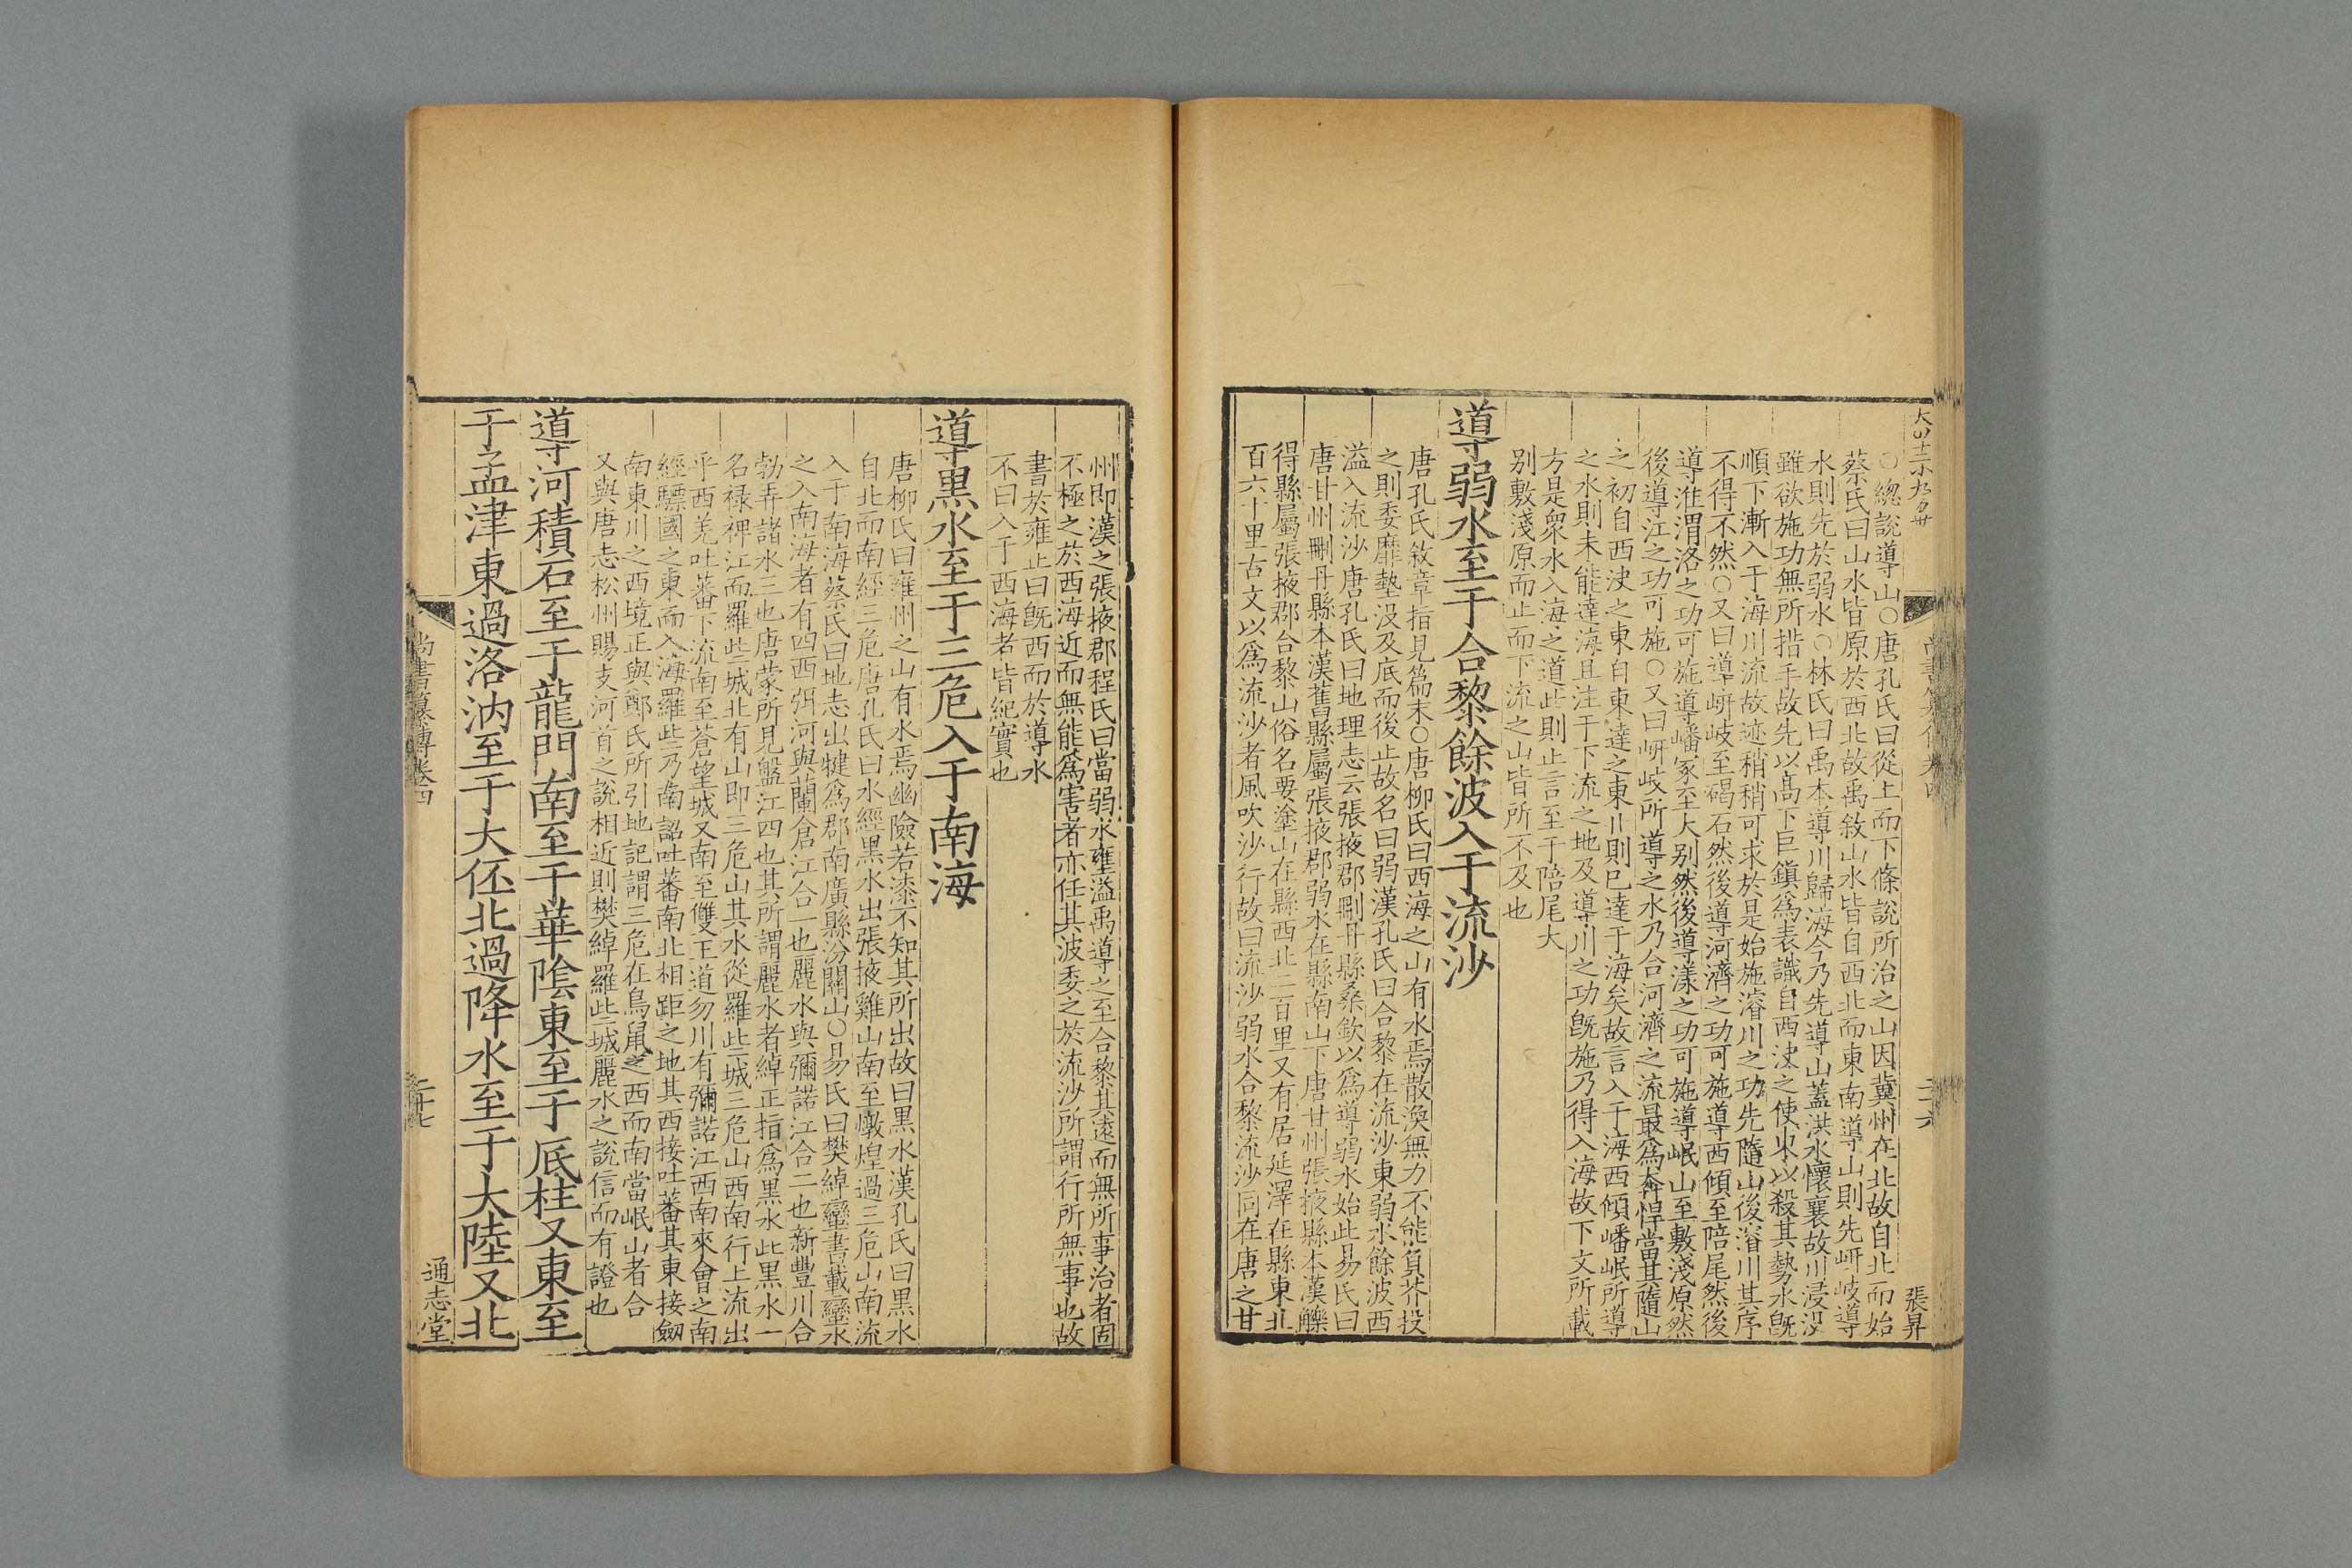 大四十二小九百廿
尚書纂傳卷四
二十六
張昇
○總說導山○唐孔氏曰從上而下條說所治之山因冀州在北故自北而始
蔡氏曰山水皆原於西北故禹敘山水皆自西北而東南導山則先岍岐導
水則先於弱水○林氏曰禹本導川歸海今乃先導山蓋洪水懷襄故川浸没
雖欲施功無所措手故先以髙下巨鎮爲表識自西泱之使水以殺其勢水旣
順下漸入于海川流故迹稍稍可求於是始施濬川之功先隨山後濬川其序
不得不然○又曰導岍岐至碣石然後導河濟之功可施導西傾至陪尾然後
導淮渭洛之功可施導嶓冢至大别然後導漾之功可施導岷山至敷淺原然
後導江之功可施○又曰岍岐所導之水乃合河濟之流最爲奔悍當其隨山
之初自西泱之東自東達之東川則巳達于海矣故言入于海西傾嶓岷所導
之水則未能達海且注于下流之地及導川之功旣施乃得入海故下文所載
方是衆水入海之道此則止言至于陪尾大
别敷淺原而止而下流之山皆所不及也
導弱水至于合黎餘波入于流沙
唐孔氏敘章指見篇末○唐柳氏曰西海之山有水焉散渙無力不能負芥投
之則委靡墊没及底而後止故名曰弱漢孔氏曰合黎在流沙東弱水餘波西
溢入流沙唐孔氏曰地理志云張掖郡刪丹縣桑欽以爲導弱水始此易氏曰
唐甘州刪丹縣本漢舊縣屬張掖郡弱水在縣南山下唐甘州張掖縣本漢觻
得縣屬張掖郡合黎山俗名要塗山在縣西北二百里又有居延澤在縣東北
百六十里古文以爲流沙者風吹沙行故曰流沙弱水合黎流沙同在唐之甘
州即漢之張掖郡程氏曰當弱水壅溢禹導之至合黎其遠而無所事治者固
不極之於西海近而無能爲害者亦任其波委之於流沙所謂行所無事也故
書於雍止曰旣西而於導水
不曰入于西海者皆紀實也
導黑水至于三危入于南海
唐柳氏曰雍州之山有水焉幽險若漆不知其所出故曰黑水漢孔氏曰黑水
自北而南經三危唐孔氏曰水經黑水出張掖雞山南至燉煌過三危山南流
入于南海蔡氏曰地志出犍爲郡南廣縣汾關山○易氏曰樊綽蠻書載蠻水
之入南海者有四西洱河與蘭倉江合一也麗水與彌諾江合二也新豐川合
勃弄諸水三也唐蒙所見盤江四也其所謂麗水者綽正指爲黑水此黑水一
名禄裨江而羅些城北有山即三危山其水從羅些城三危山西南行上流出
乎西羌吐蕃下流南至蒼望城又南至雙王道勿川有彌諾江西南來會之南
經驃國之東而入海羅些乃南詔吐蕃南北相距之地其西接吐蕃其東接劒
南東川之西境正與鄭氏所引地記謂三危在鳥鼠之西而南當岷山者合
又與唐志松州賜支河首之說相近則樊綽羅些城麗水之說信而有證也
導河積石至于龍門南至于華陰東至于厎柱又東至
于孟津東過洛汭至于大伾北過降水至于大陸又北
尚書纂傳卷四
二十七
通志堂